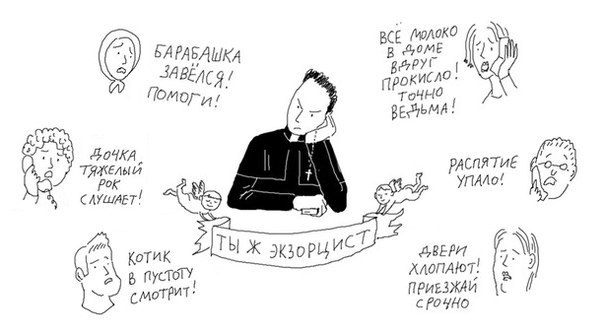 БАРАБАШКА
ЗАВЁЛСЯ!
ПОМОГИ!
ВСЁ МОЛОКО
В ДОМЕ
ВДРУГ
ПРОКИСЛО!
ТОЧНО
ВЕДЬМА!
ДОЧКА
ТЯЖЕЛЫЙ
РОК
СЛУШАЕТ!
РАСПЯТИЕ
УПАЛО!
КОТИК
В ПУСТОТУ
СМОТРИТ!
ТЫ Ж ЭКЗОРЦИСТ
ДВЕРИ
ХЛОПАЮТ!
ПРИЕЗЖАЙ
СРОЧНО